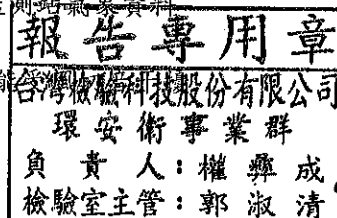 測站氣象資料
報告專用章
台灣檢驗科技股份有限公司
環安衛事業群
負責人：權彝成
檢驗室主管：郭淑清